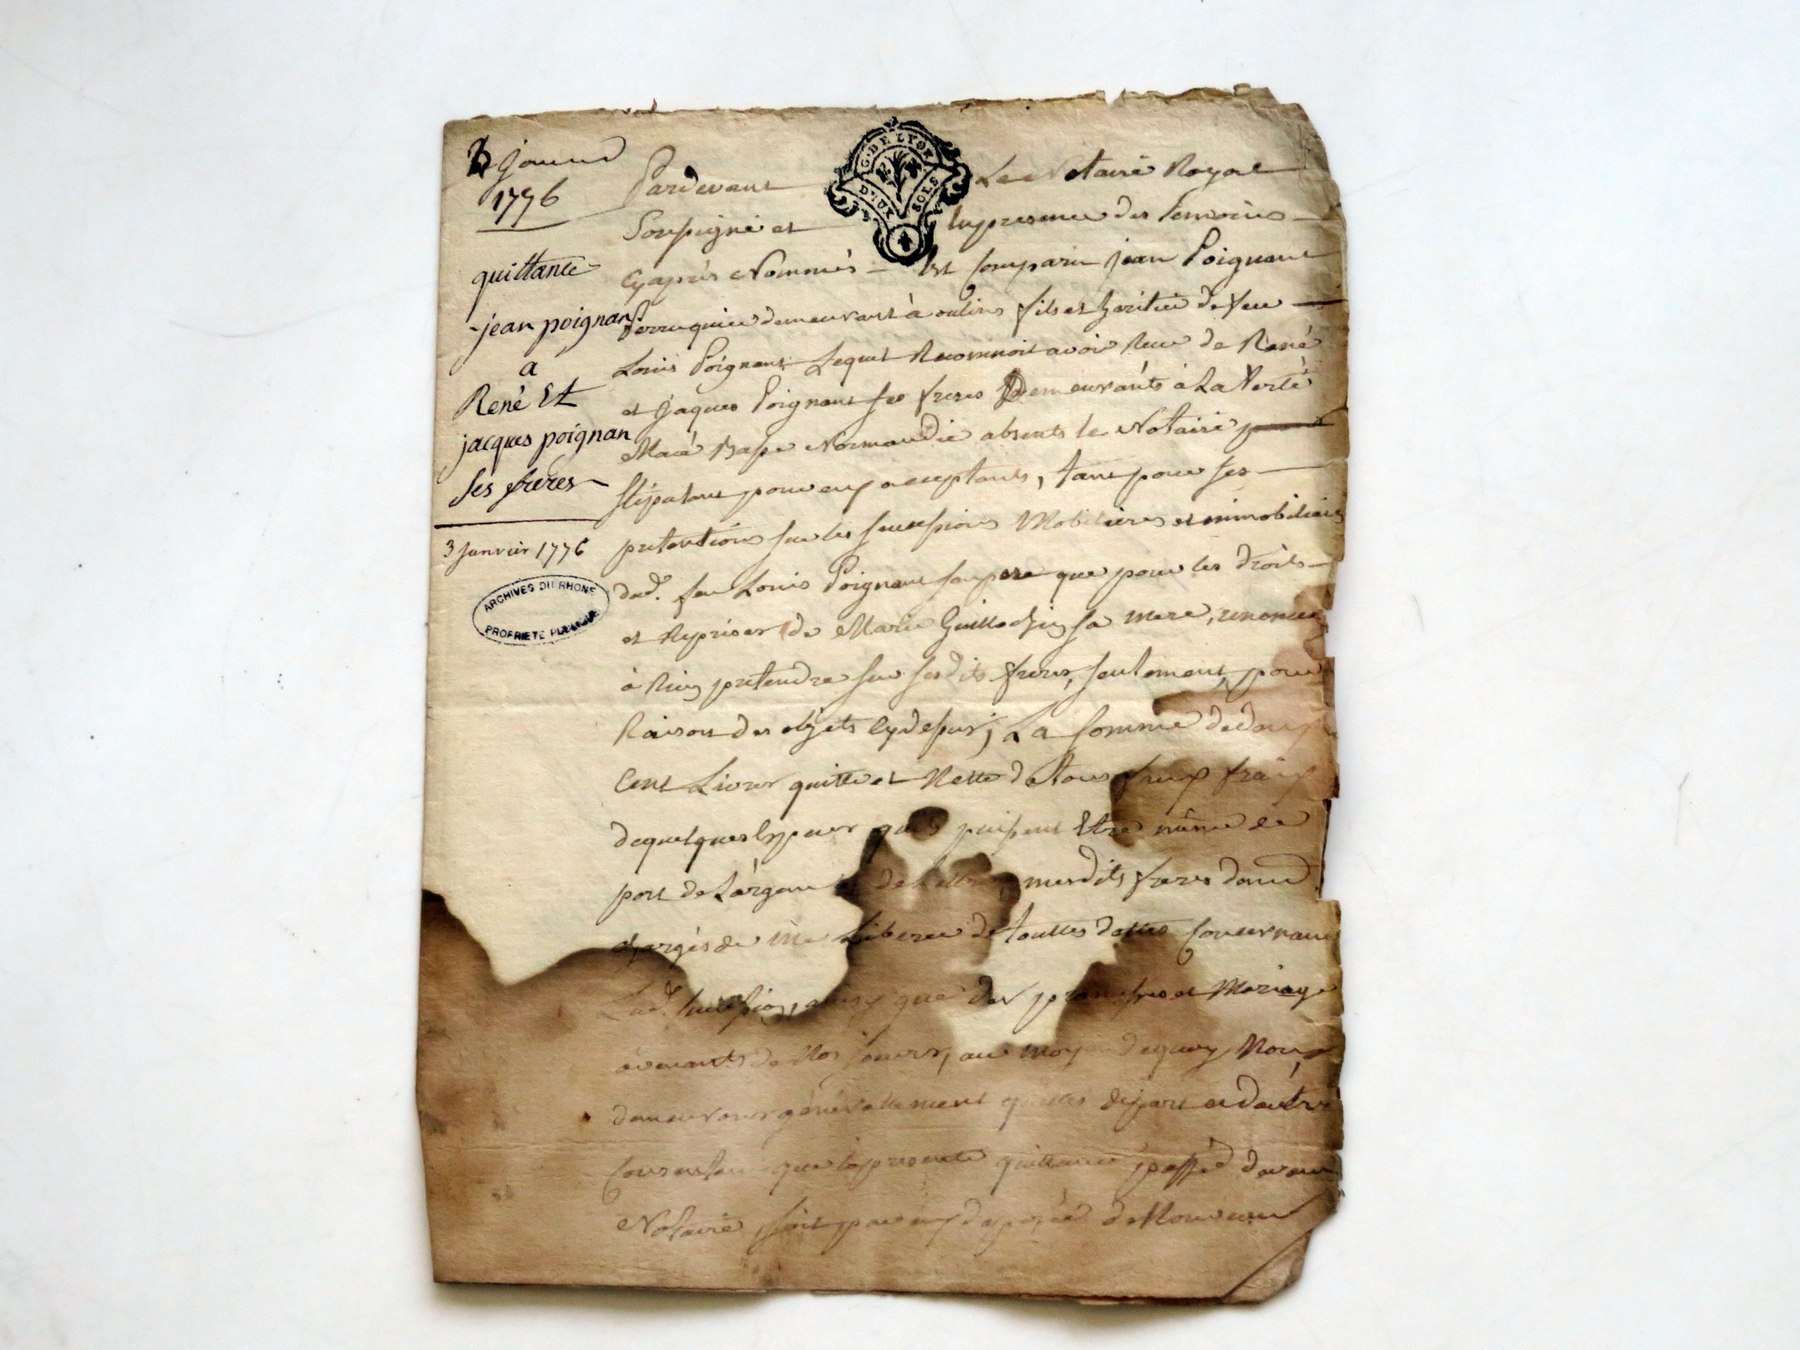 3 janvier
1776
quittance
jean poignant
a
René Et
jacques poignan
ses freres
3 Janvier 1776
ARCHIVES DU RHONE
PROPRIETE PUBLIQUE
G. DE LYON
DEUX SOLS
Pardevant Le Notaire Royal
Soussigné et En presence des Temoins
Cyaprés Nommés Est Comparu jean Poignant
Perruquier demeurant à oulins fils et heritier de feu
Louis Poignant Lequel Reconnoit avoir Recu de René
et Jaques Poignant ses freres Demeurants à La Ferté
Macé Basse Normandie absents le Notaire
Stipulant pour eux acceptants, tant pour ses
pretentions sur les successions Mobilieres et immobilieres
dud. feu Louis Poignant son pere que pour les droits
et Reprises de Marie sa mere, renoncer
à Rien pretendre sur sesdits freres, seulement, pour
Raison des objets Cydessus; La somme de
Cent Livres quitte et Nette de tous frais
de quelques Especes puissent Etre même de
port de L'argent mesdits freres
chargés de me Liberer de touttes dettes Concernant
Lad. succession, que des promesses et Mariage
de Nos au moyen dequoy Nous
demeurons généralement quittes de part et d'autre
Consentant que la presente quittance passée devant
Notaire, soit par eux deposée de Nouveau